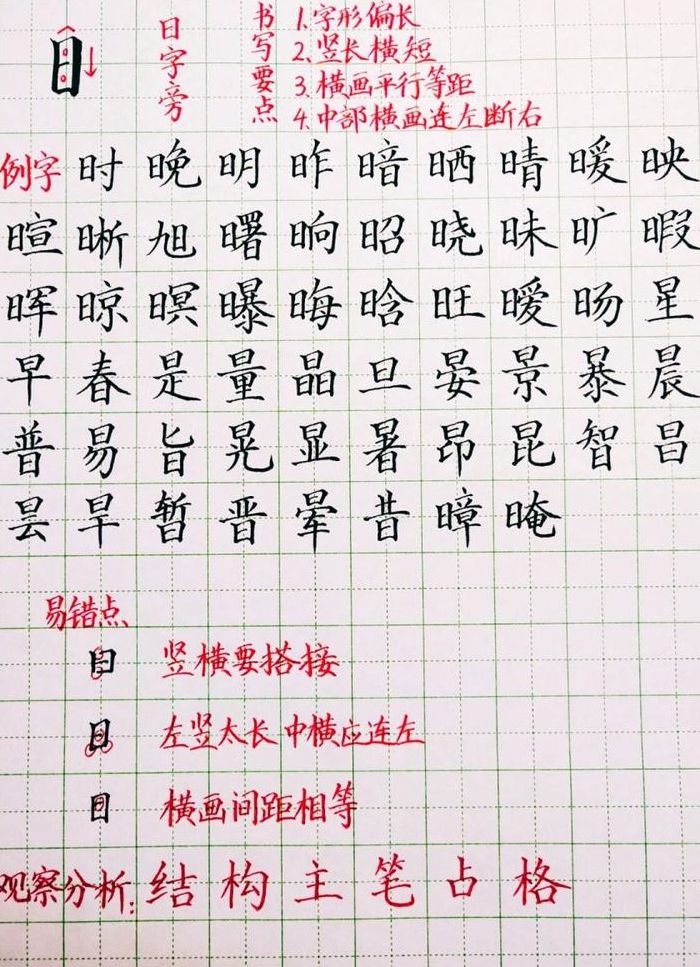 日
日字旁
书写要点
1.字形偏长
2.竖长横短
3.横画平行等距
4.中部横画连左断右
例字 时 晚 明 昨 暗 晒 晴 暖 映
暄 晰 旭 曙 晌 昭 晓 昧 旷 暇
晖 晾 暝 曝 晦 晗 旺 暧 旸 星
早 春 是 量 晶 旦 晏 景 暴 晨
普 易 旨 晃 显 暑 昂 昆 智 昌
昙 旱 暂 晋 晕 昔 暲 晻
易错点
日 竖横要搭接
日 左竖太长 中横应连左
日 横画间距相等
观察分析: 结构主笔占格